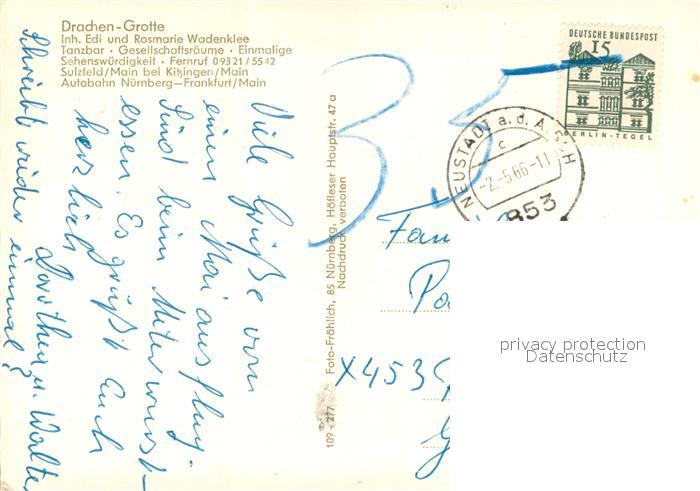 Drachen-Grotte
Inh. Edi und Rosmarie Wadenklee
Tanzbar · Gesellschaftsräume · Einmalige
Sehenswürdigkeit · Fernruf 0 93 21 / 55 42
Sulzfeld/Main bei Kitzingen/Main
Autobahn Nürnberg—Frankfurt/Main
Viele Grüße vom
einem Maiausflug.
Sind beim Meterwurst-
essen. Es grüßt Euch
herzlich
Dorothea u. Walter
Schreibt wieder einmal!
109 - 277
Foto-Fröhlich, 85 Nürnberg, Höfleser Hauptstr. 47 a
Nachdruck verboten
35
DEUTSCHE BUNDESPOST
15
BERLIN-TEGEL
NEUSTADT a. d. AISCH
c
-2.-5.66-11
853
Fam
X453
privacy protection
Datenschutz